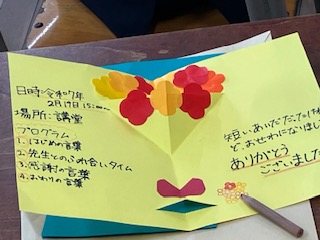 日時:令和7年
2月17日 15:00〜
場所:講堂
プログラム
1.はじめの言葉
2.先生とのふれ合いタイム
3.感謝の言葉
4.おわりの言葉
短いあいだだったけれ
ど、おせわになりまし
ありがとう
ございました